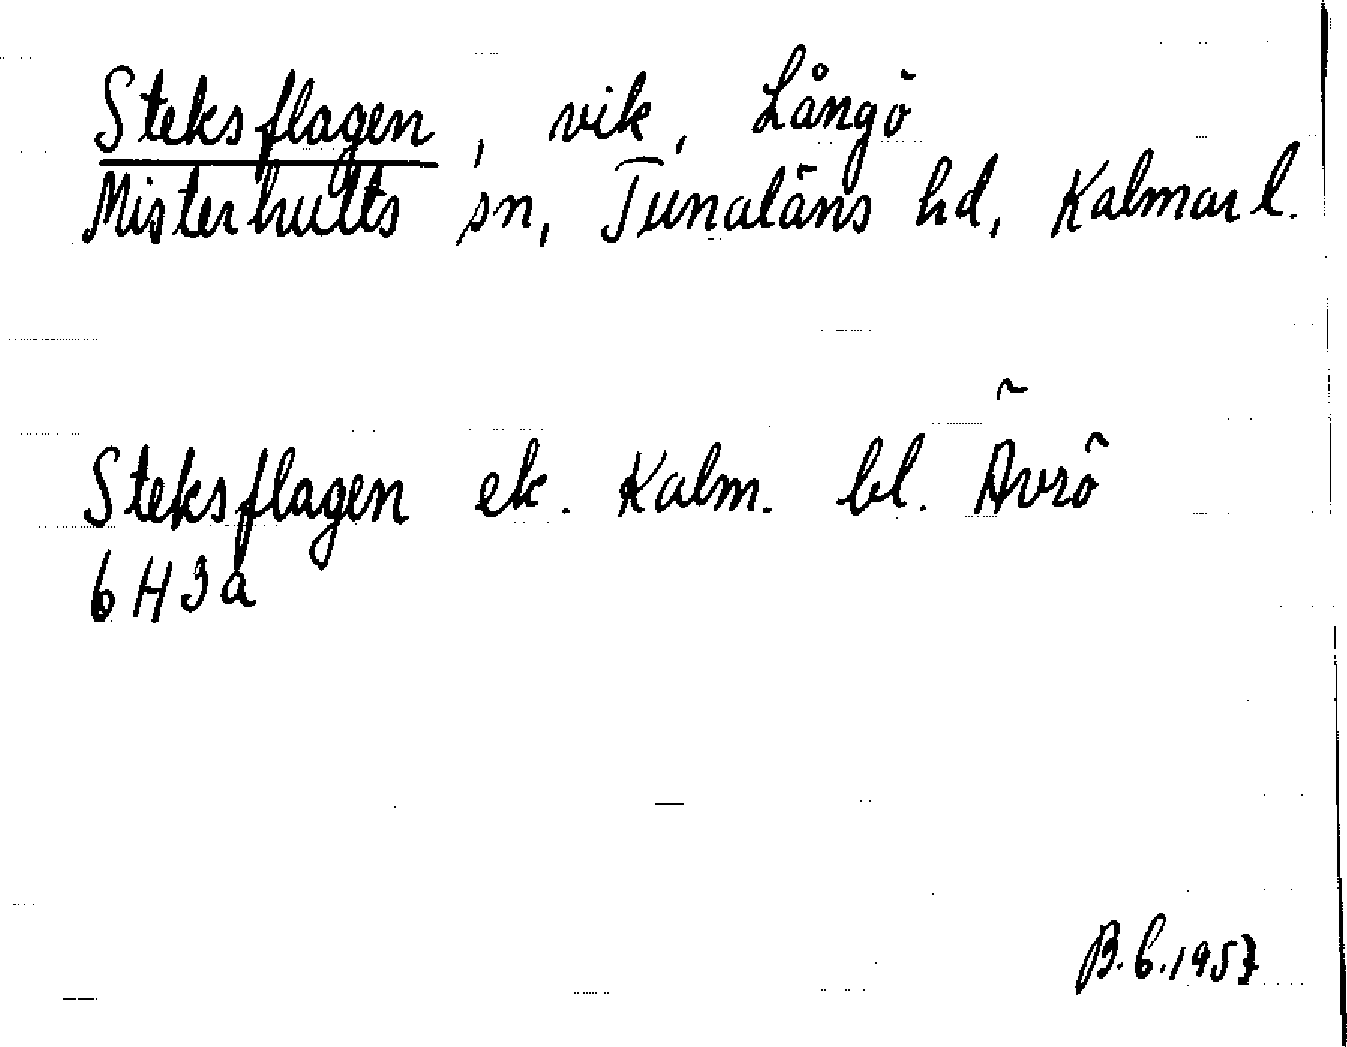 Steksflagen, vik, Långö
Misterhults sn, Tunaläns hd, Kalmar l.
Steksflagen ek. Kalm. bl. Ävrö
6H3a
B.6.1957